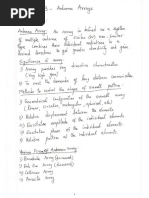 3 - Antenna Arrays
Antenna Array: An array is defined as a system
of multiple antenna of similar (or) non similar
type combine their individual radiations in a
to get greater directivity and gain.
Significance of array:
i) Array provides high directive characteristics
(very high gain)
ii) to meet the demands of long distance communication.
Methods to control the shape of overall pattern
i) Geometrical configuration of the overall array
(linear, circular, rectangular, spherical, etc)
ii) Relative displacement between the elements
iii) Excitation amplitude of the individual elements
iv) Excitation phase of the individual elements
v) Relative pattern of the individual elements.
Various Forms of Antenna Array
i) Broadside Array
ii) End fire Array
iii) Collinear Array
iv) Parasitic Array
1